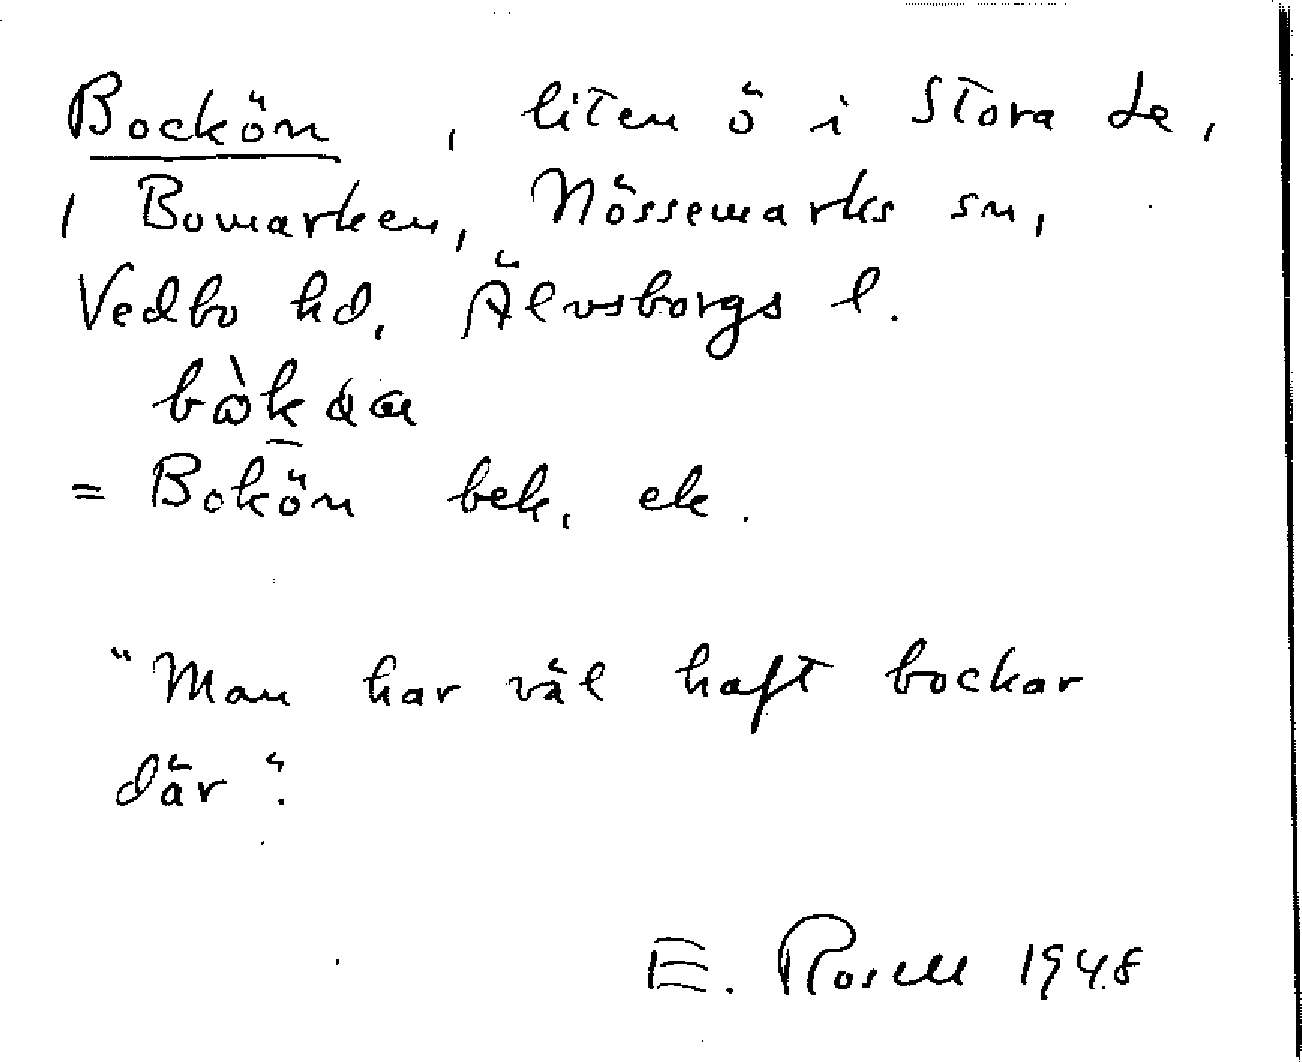 Bockön, liten ö i Stora Le,
i Bomarken, Nössemarks sn,
Vedbo hd, Älvsborgs l.
= Bokön bek. ek.
"Man har väl haft bockar
där".
E. Rosell 1948